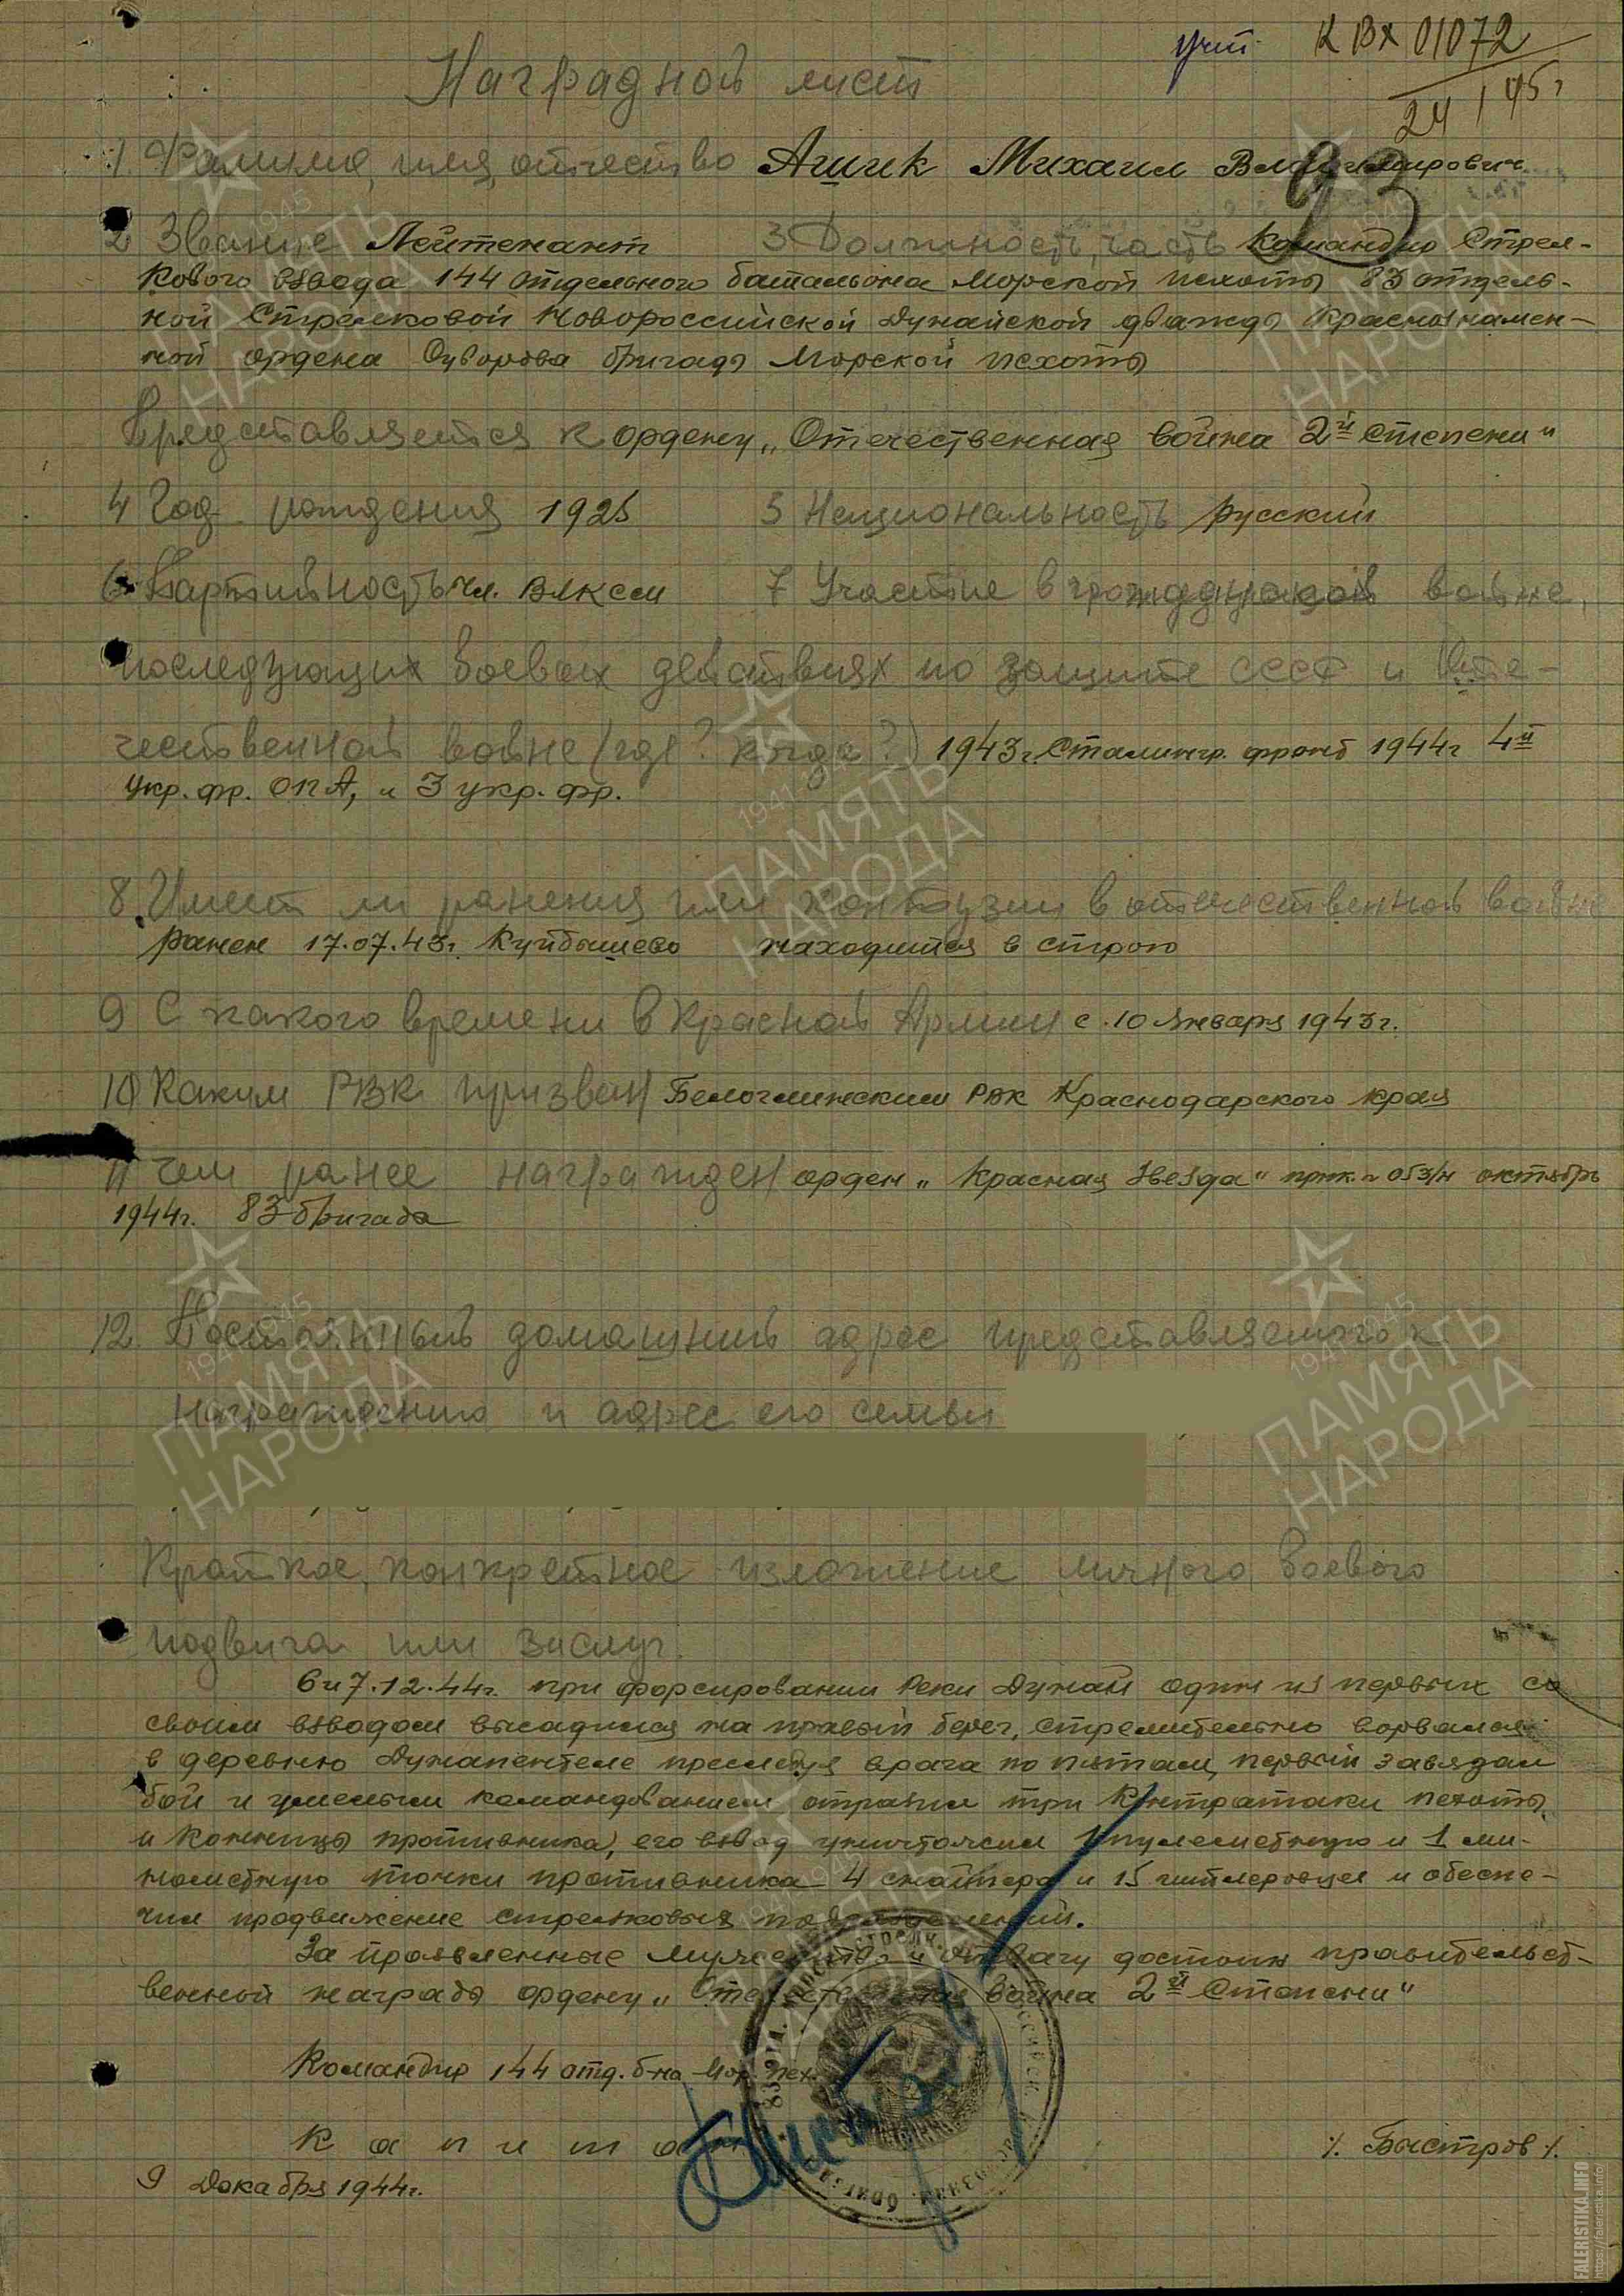 учт. К ВХ 01072
24/I 45г
Наградной лист
1. Фамилия, имя, отчество Ашик Михаил Владимирович
93
2 Звание Лейтенант 3 Должность, часть Командир Стрел-
кового взвода 144 отдельного батальона Морской пехоты 83 отдель-
ной Стрелковой Новороссийской Дунайской дважды Краснознамен-
ной ордена Суворова бригады Морской пехоты
Представляется к ордену „Отечественная война 2й степени"
4 Год рождения 1925 5 Национальность русский
6. Партийность чл. ВЛКСМ 7 Участие в гражданской войне,
последующих боевых действиях по защите СССР и Оте-
чественной войне (где? когда?) 1943г. Сталингр. фронт 1944г 4й
укр. фр. ОПА, и 3 укр. фр.
8. Имеет ли ранения или контузии в отечественной войне
ранен 17.07.43г. Куйбышево находится в строю
9 С какого времени в Красной Армии с 10 января 1943г.
10 Каким РВК призван Белоглинским РВК Краснодарского края
11 Чем ранее награжден орден „Красная Звезда" прик. 053/н октябрь
1944г. 83 бригада
12. Постоянный домашний адрес представляемого к
награждению и адрес его семьи
Краткое, конкретное изложение личного боевого
подвига или заслуг.
6 и 7.12.44г. при форсировании реки Дунай один из первых со
своим взводом высадился на правый берег, стремительно ворвался
в деревню Дунапентеле преследуя врага по пятам, первый завязал
бой и умелым командованием отразил три контратаки пехоты
и конницы противника, его взвод уничтожил 1 пулеметную и 1 ми-
нометную точки противника 4 снайпера и 15 гитлеровцев и обеспе-
чил продвижение стрелковых подразделений.
За проявленные мужество и отвагу достоин правительст-
венной награды ордену „Отечественная война 2й Степени"
Командир 144 отд. б-на Мор. пех.
Капитан /Быстров/.
9 Декабря 1944г.
ПАМЯТЬ
НАРОДА
1941-1945
FALERISTIKA.INFO
https://faleristika.info/